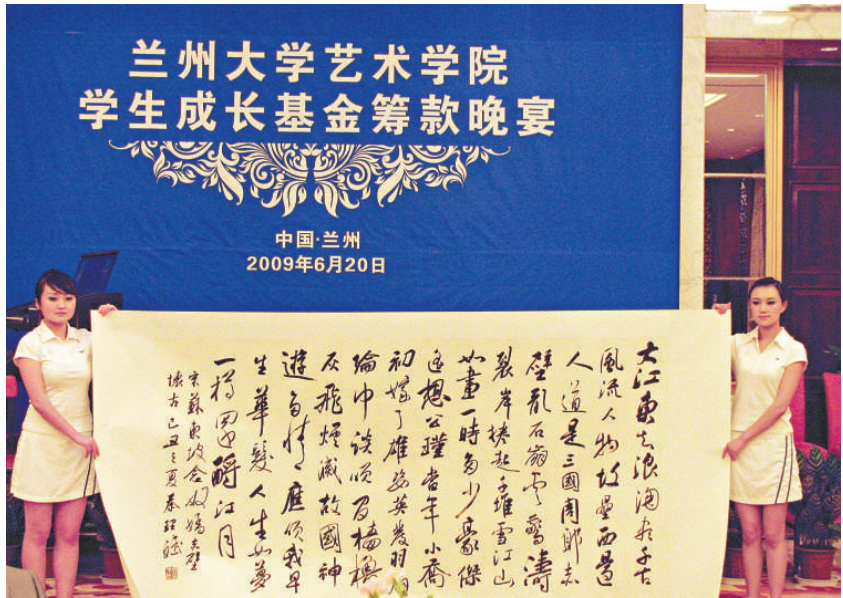 兰州大学艺术学院
学生成长基金筹款晚宴
中国·兰州
2009年6月20日
大江東去浪淘尽千古
風流人物故壘西邊
人道是三國周郎赤
壁乱石崩雲驚濤
裂岸捲起千堆雪江山
如畫一時多少豪傑
遥想公瑾當年小喬
初嫁了雄姿英發羽扇
綸巾談笑間檣櫓
灰飛煙滅故國神
遊多情應笑我早
生華髮人生如夢
一樽還酹江月
宋蘇東坡念奴嬌赤壁
懷古己丑之夏